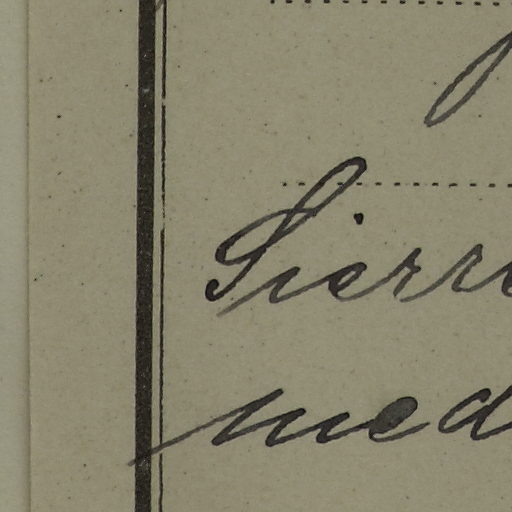 Sierre
med